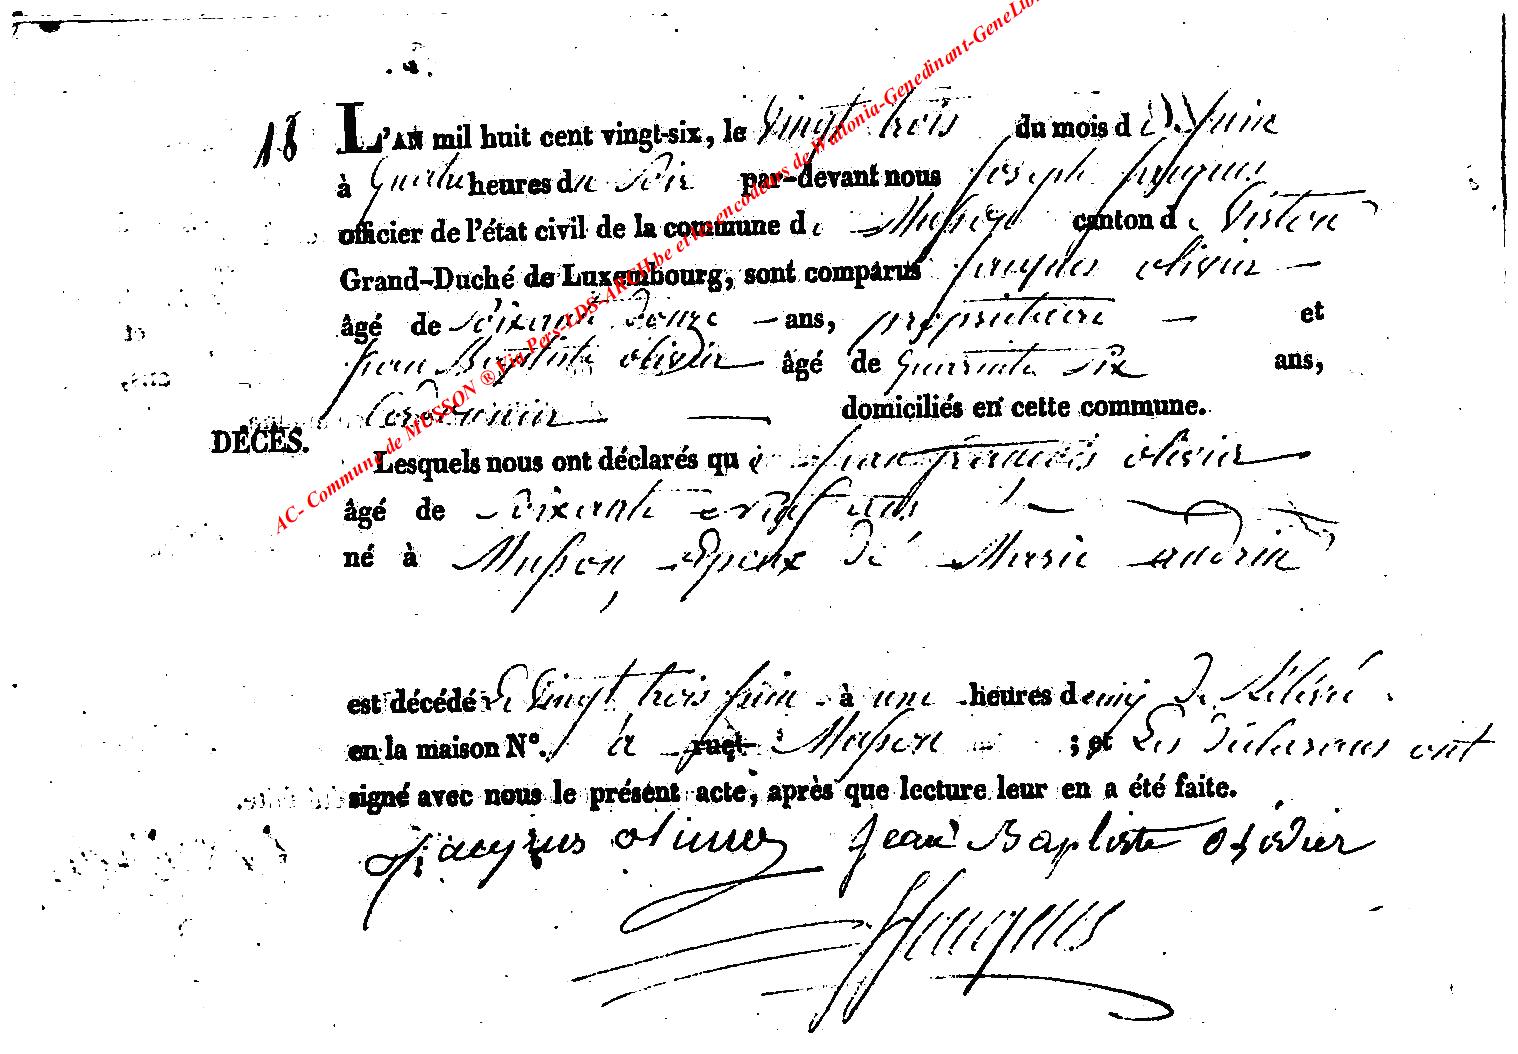 18 L'AN mil huit cent vingt-six, le Vingt trois du mois de Juin
à Quatre heures du Soir par-devant nous Joseph Jacques
officier de l'état civil de la commune de Musson canton de Virton
Grand-Duché de Luxembourg, sont comparus Jacques olivier
âgé de Soixante Douze ans, propriétaire et
Jean Baptiste olivier âgé de Quarante Six ans,
Cordonnier domiciliés en cette commune.
DÉCÈS.
Lesquels nous ont déclarés que Jean françois olivier
âgé de Soixante ans
né à Musson, Epoux de Marie
est décédé le Vingt trois Juin à une heures demy de
en la maison N°. à rue Musson ; et Les Déclarans ont
signé avec nous le présent acte, après que lecture leur en a été faite.
Jacques olivier Jean Baptiste olivier
JJacques
AC- Commune de MUSSON ® Via Pers-LDS-ARCH.be et les encodeurs de Wallonia-Genedinant-GeneLib